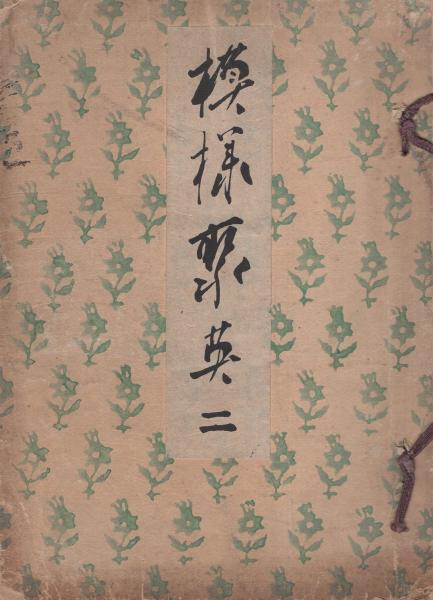 模様聚英二